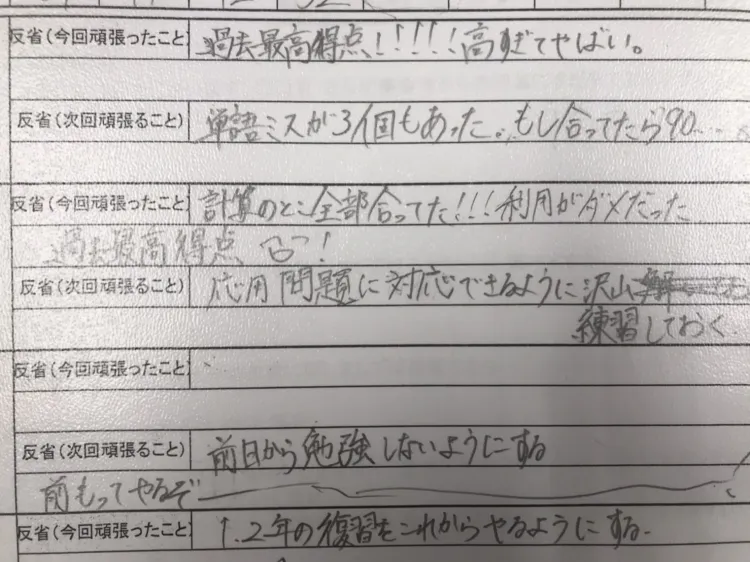 反省(今回頑張ったこと) 過去最高得点!!!!!高すぎてやばい。
反省(次回頑張ること) 単語ミスが3個もあった。もし合ってたら90...
反省(今回頑張ったこと) 計算のとこ全部合ってた!!!利用がダメだった
過去最高得点 !
反省(次回頑張ること) 応用問題に対応できるように沢山
練習しておく
反省(今回頑張ったこと)
反省(次回頑張ること) 前日から勉強しないようにする
前もってやるぞ
反省(今回頑張ったこと) 1.2年の復習をこれからやるようにする.